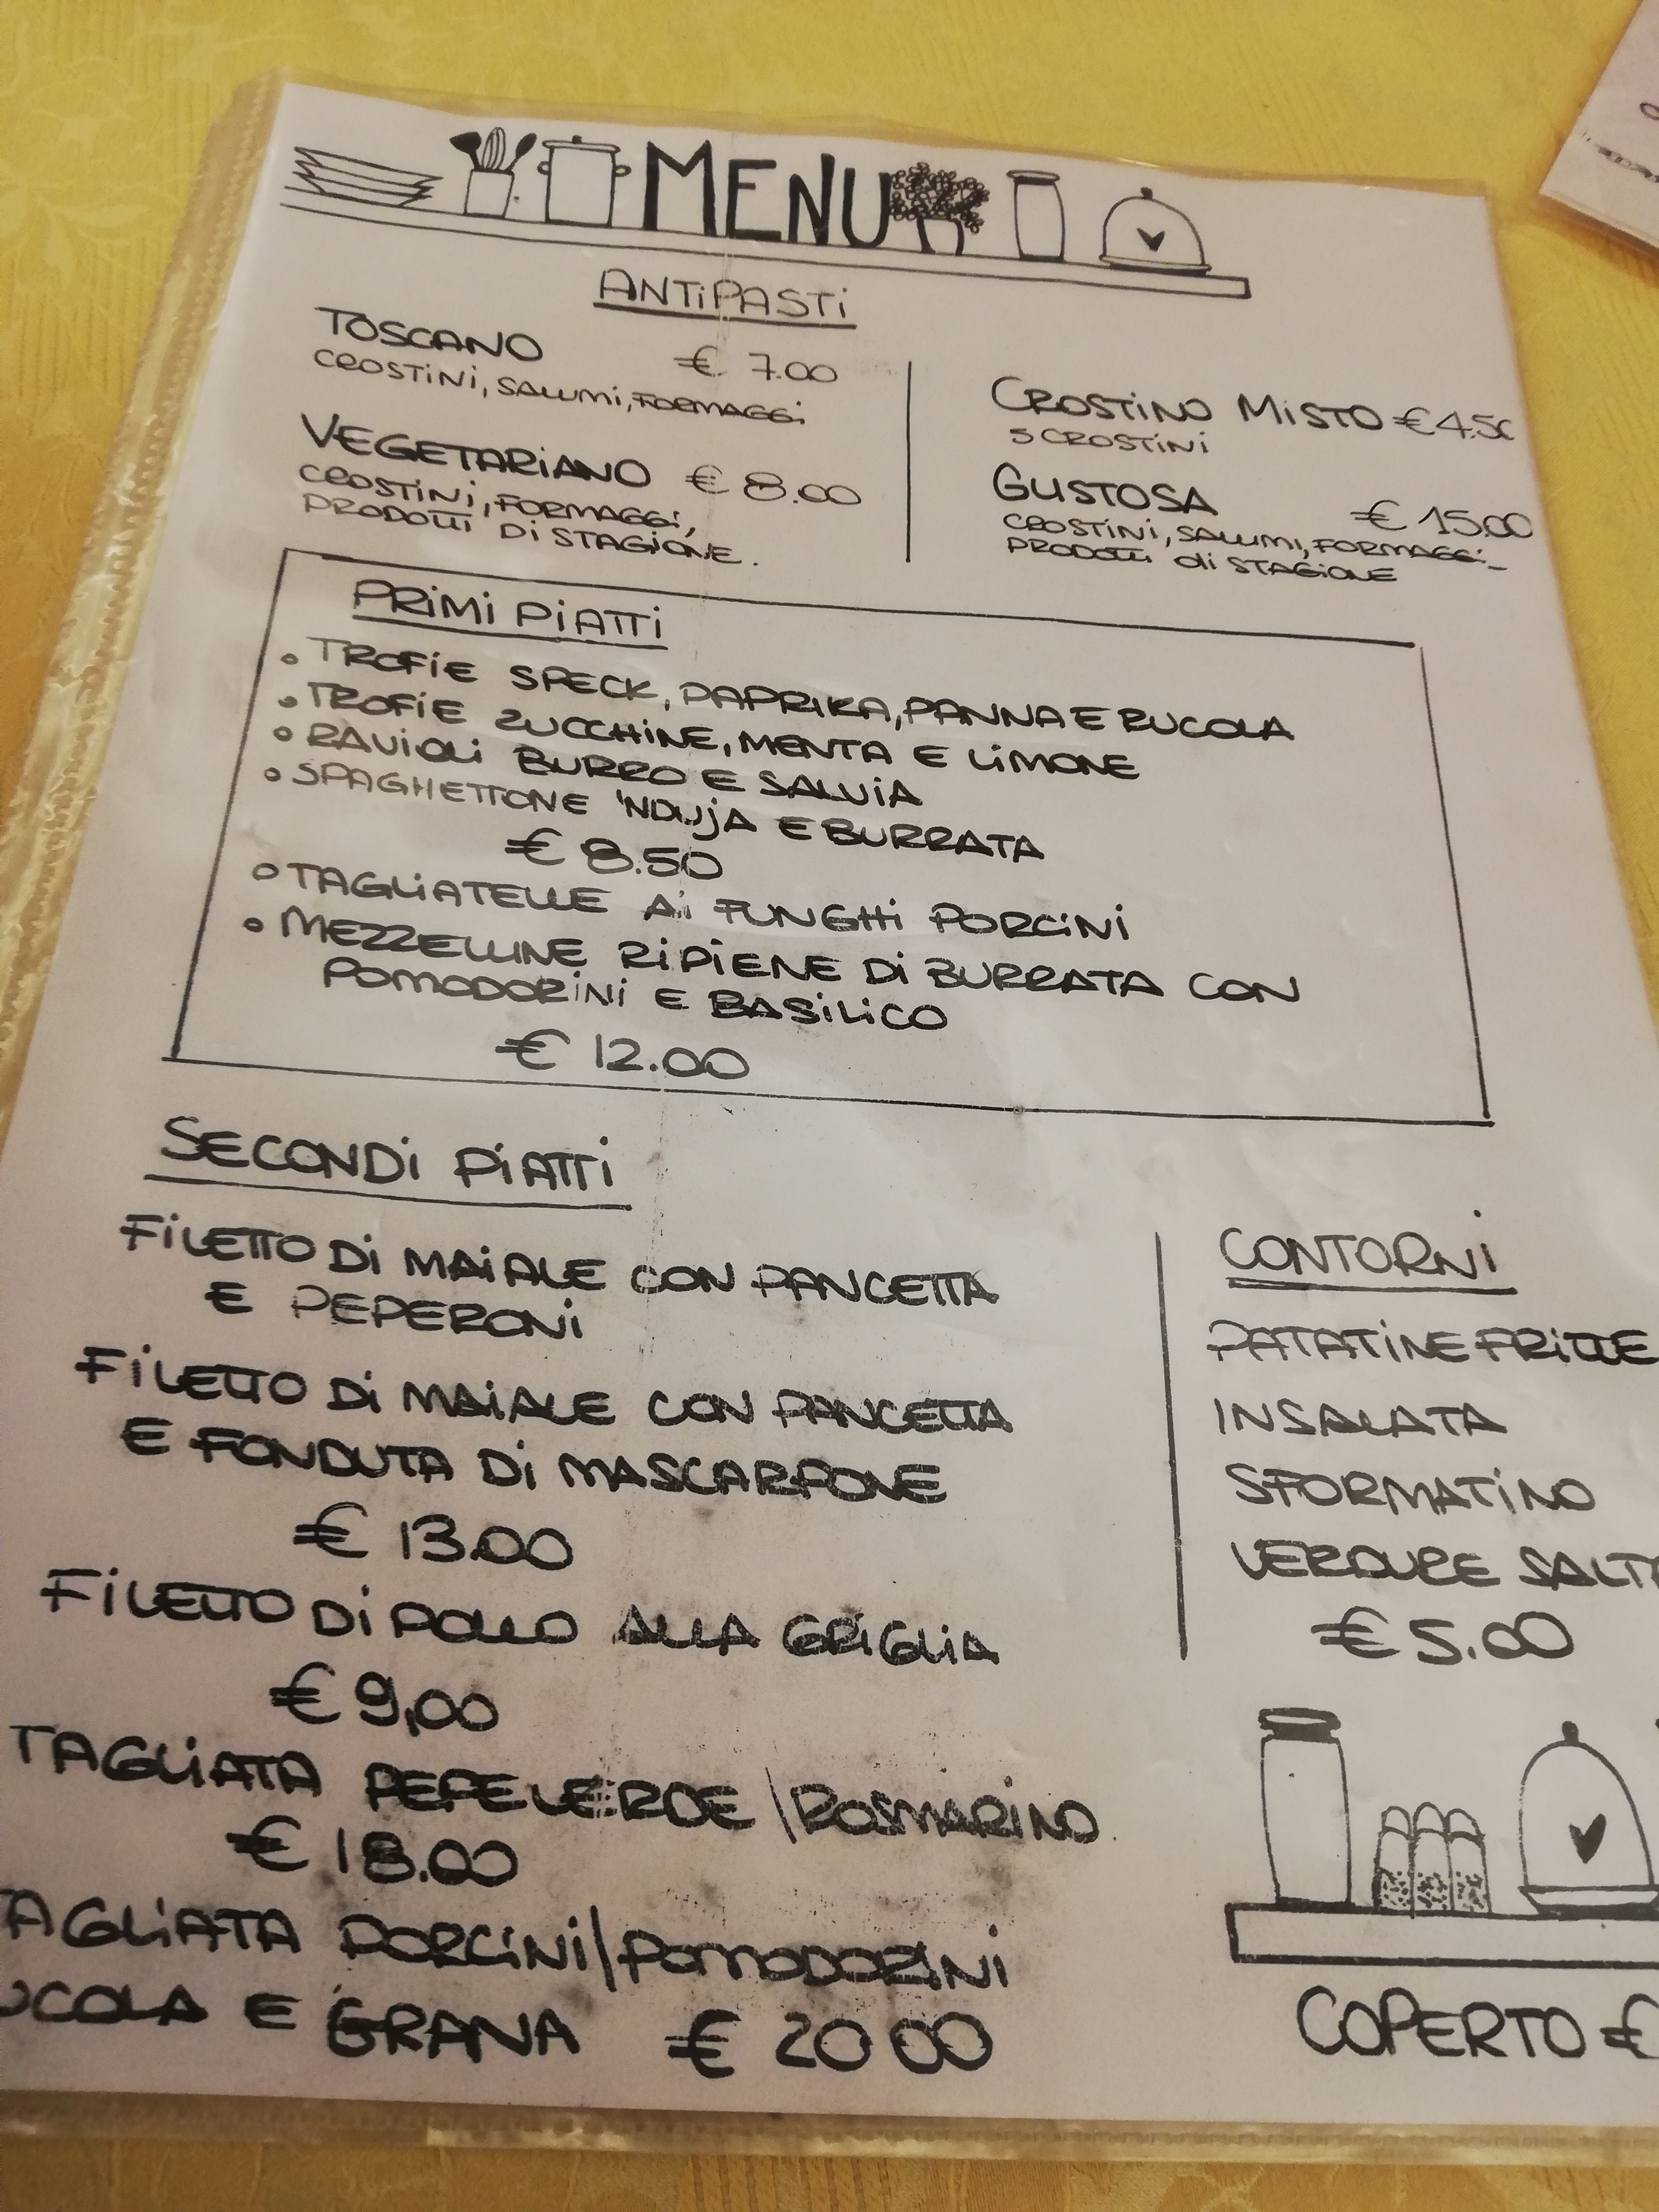 MENU
ANTIPASTI
TOSCANO € 7.00
CROSTINI, SALUMI, FORMAGGI
VEGETARIANO € 8.00
CROSTINI, FORMAGGI,
PRODOTTI DI STAGIONE.
CROSTINO MISTO € 4.50
5 CROSTINI
GUSTOSA € 15.00
CROSTINI, SALUMI, FORMAGGI
PRODOTTI di STAGIONE
PRIMI PIATTI
TROFIE SPECK, PAPRIKA, PANNA E RUCOLA
TROFIE ZUCCHINE, MENTA E LIMONE
RAVIOLI BURRO E SALVIA
SPAGHETTONE 'NDUJA E BURRATA
€ 8.50
TAGLIATELLE AI FUNGHI PORCINI
MEZZELUNE RIPIENE DI BURRATA CON
POMODORINI E BASILICO
€ 12.00
SECONDI PIATTI
FILETTO DI MAIALE CON PANCETTA
E PEPERONI
FILETTO DI MAIALE CON PANCETTA
E FONDUTA DI MASCARPONE
€ 13.00
FILETTO DI POLLO ALLA GRIGLIA
€ 9,00
TAGLIATA PEPE VERDE / ROSMARINO
€ 18.00
TAGLIATA PORCINI / POMODORINI
UCOLA E GRANA € 20 00
CONTORNI
PATATINE FRITTE
INSALATA
SFORMATINO
VERDURE SALT
€ 5.00
COPERTO €